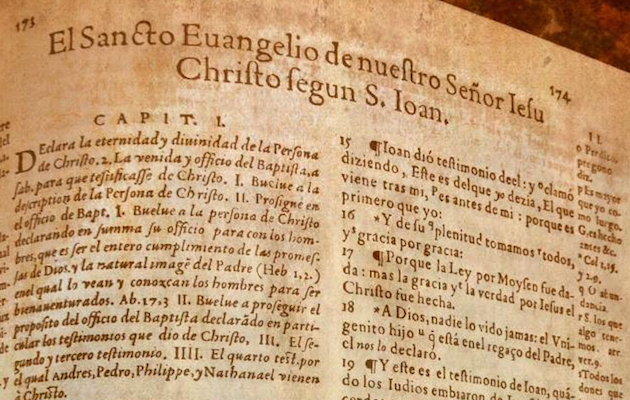 173
El Sancto Euangelio de nuestro Señor Iesu
Christo segun S. Ioan.
174
CAPIT. I.
DEclara la eternidad y diuinidad de la Persona
de Christo. 2. La venida y officio del Baptista, a
sab. para que testificasse de Christo. I. Buelue a la
description de la Persona de Christo. II. Prosigue en
el officio de Bapt. I. Buelue a la persona de Christo
declarando en summa su officio para con los hom-
bres, que es ser el entero cumplimiento de las promes-
sas de Dios, y la natural imagē del Padre (Heb 1, 2.)
enel qual lo vean y conozcan los hombres para ser
bienauenturados. Ab. 17,3 II. Buelue a proseguir el
proposito del officio del Baptista declarādo en parti-
cular los testimonios que dio de Christo, III. El se-
gundo y tercero testimonio. IIII. El quarto test. por
el qual Andres, Pedro, Philippe, y Nathanael vienen
à Christo.
15 ¶Ioan dió testimonio deel: y clamó
diziendo, Este es delque yo dezia, El que
viene tras mi, es antes de mi: porque es
primero que yo:
16 *Y de su plenitud tomamos todos,
y gracia por gracia:
17 ¶Porque la Ley por Moysen fue da-
da: mas la gracia y la verdad por Iesus el
Christo fue hecha.
18 *A Dios, nadie lo vido jamas: el Vni-
genito hijo q̃ está enel regaço del Padre,
el nos lo declaró.
19 ¶Y este es el testimonio de Ioan, quā-
do los Iudios embiaron de
II.
o Perdicio
pregono
dix.
p Es mayor
que yo co-
mo luego.
G, es hecho
antes &c.
* Col 1,19.
y 2.9.